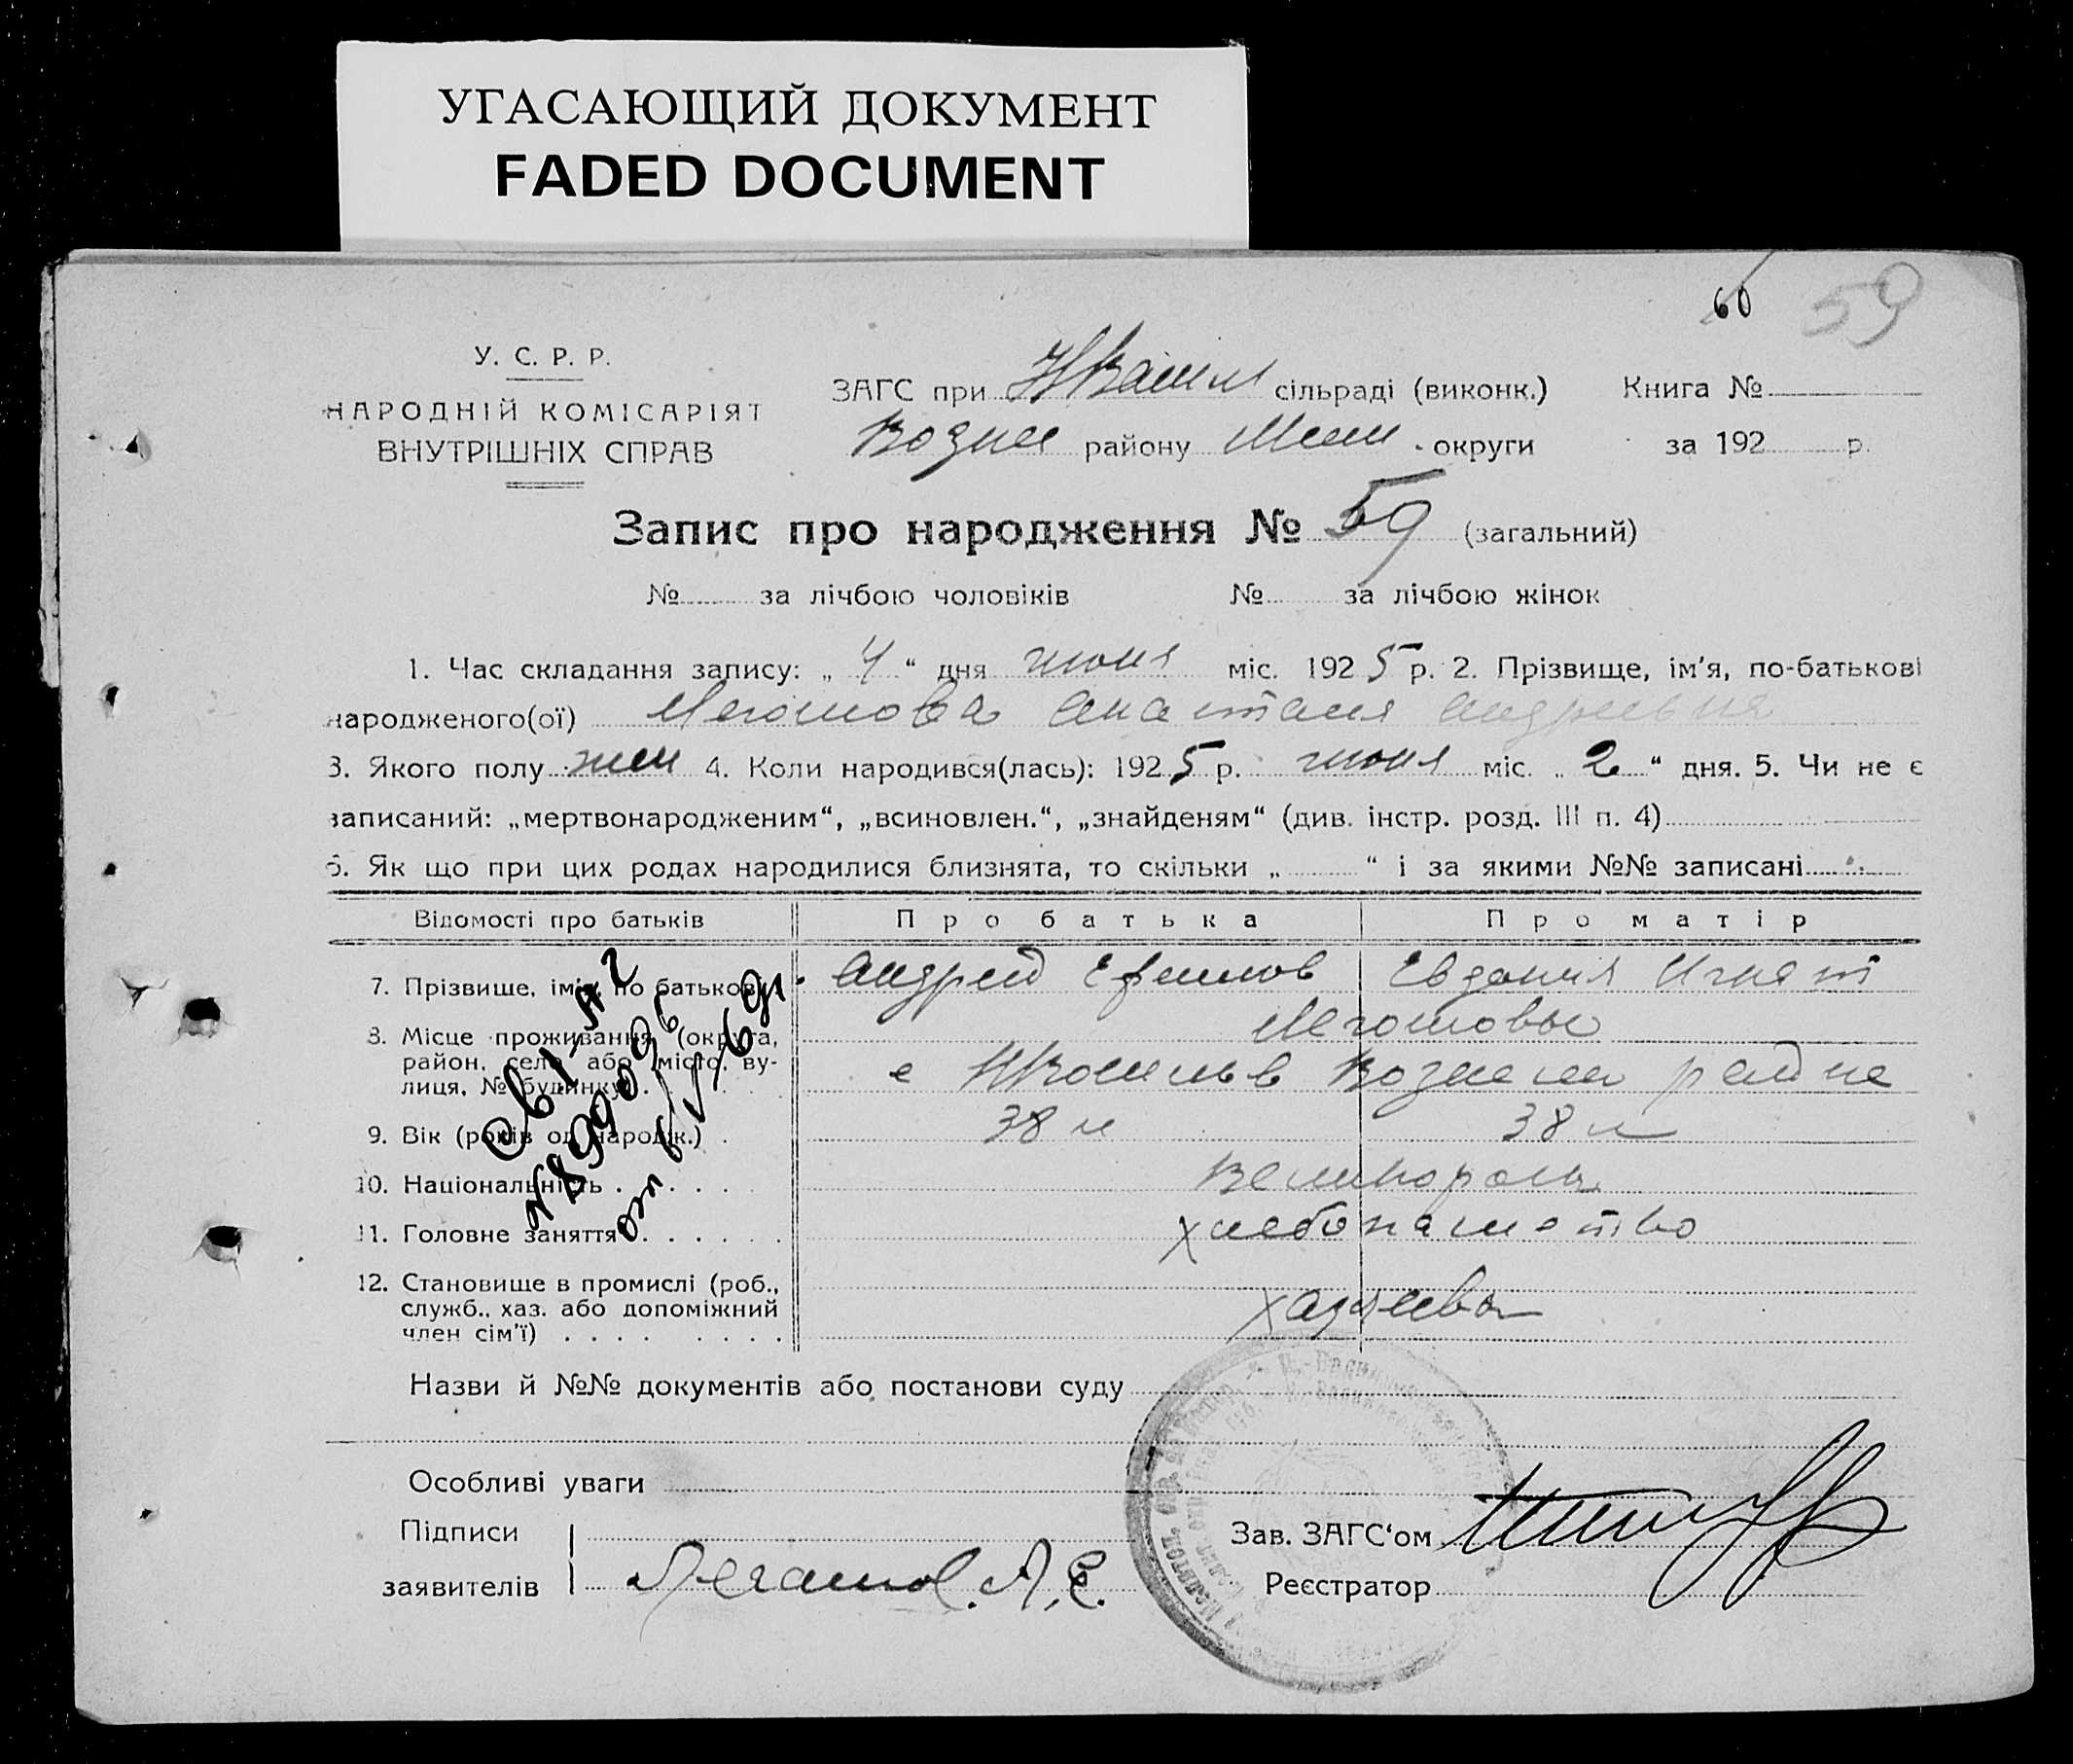 УГАСАЮЩИЙ ДОКУМЕНТ
FADED DOCUMENT
60 59
У. С. Р. Р.
НАРОДНІЙ КОМІСАРІЯТ
ВНУТРІШНІХ СПРАВ
ЗАГС при сільраді (виконк.) Книга №
Вознес району Мели округи за 192 р.
Запис про народження № 59 (загальний)
№ за лічбою чоловіків № за лічбою жінок
1. Час складання запису: „ 4 “ дня июня міс. 1925 р. 2. Прізвище, ім'я, по-батькові
народженого(ої) Легошова Анастасия Андреевна
3. Якого полу жен 4. Коли народився(лась): 1925 р. июня міс. „ 2 “ дня. 5. Чи не є
записаний: „мертвонародженим“, „всиновлен.“, „знайденям“ (див. інстр. розд. III п. 4)
6. Як що при цих родах народилися близнята, то скільки „ “ і за якими №№ записані
Відомості про батьків Про батька Про матір
7. Прізвище, ім'я, по батькові Андрей Ефимов Евдокия Игнат
Легошовы
8. Місце проживання (округа,
район, село або місто, ву-
лиця, № будинку)
9. Вік (років од народж.) 38 л 38 л
10. Національність Великоросы
11. Головне заняття хлебопашество
12. Становище в промислі (роб.,
служб., хаз. або допоміжний
член сім'ї) хазяева
Назви й №№ документів або постанови суду
Особливі уваги
Підписи
заявителів Легашов. А. Е.
Зав. ЗАГС‘ом
Реєстратор